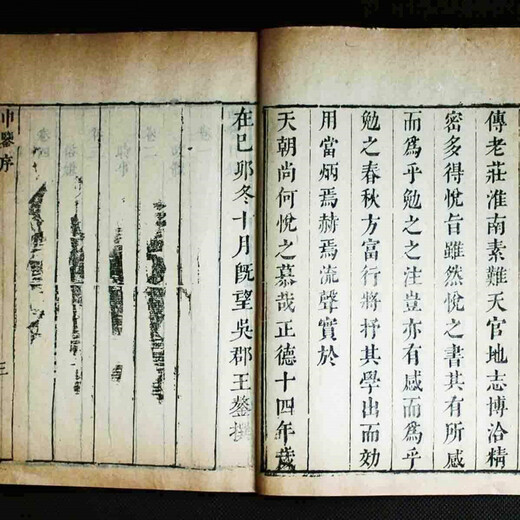 傳老莊淮南素難天官地志博洽精
密多得悅旨雖然悅之書其有所感
而爲乎勉之之注豈亦有感而爲乎
勉之春秋方富行將抒其學出而効
用當炳焉赫焉流聲實於
天朝尚何悅之慕哉正德十四年歲
在巳卯冬十月既望吳郡王鏊撰
申鑒序
三